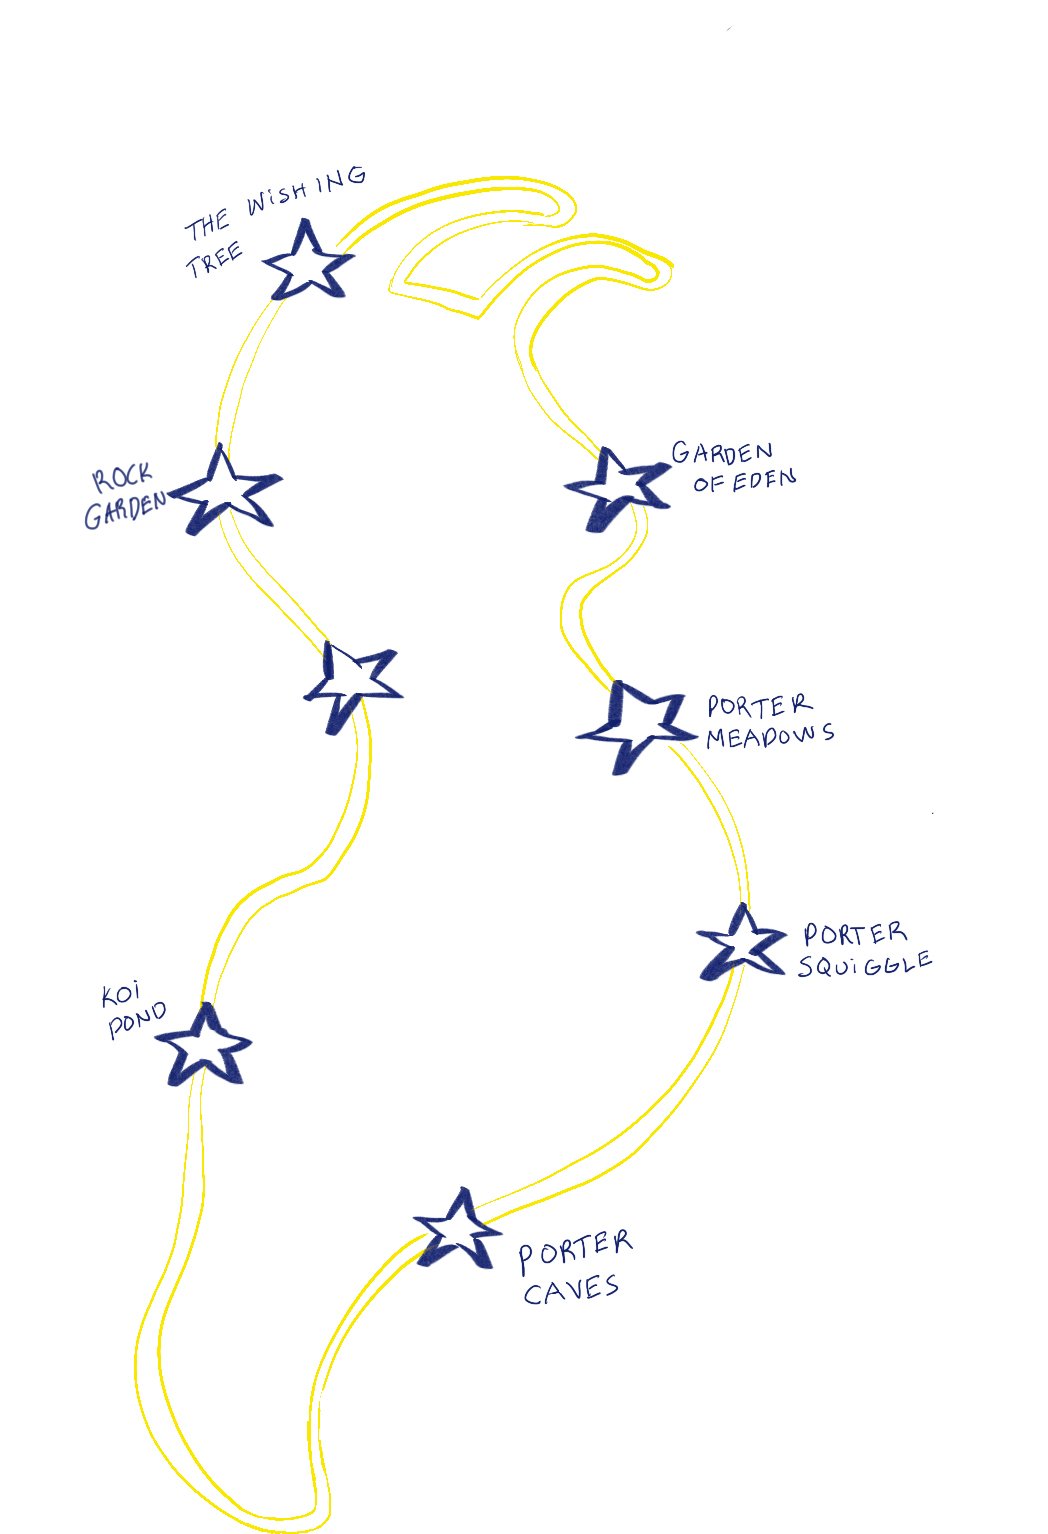 THE WiSHING
TREE
ROCK
GARDEN
GARDEN
OF EDEN
PORTER
MEADOWS
PORTER
SQUiGGLE
KOi
POND
PORTER
CAVES